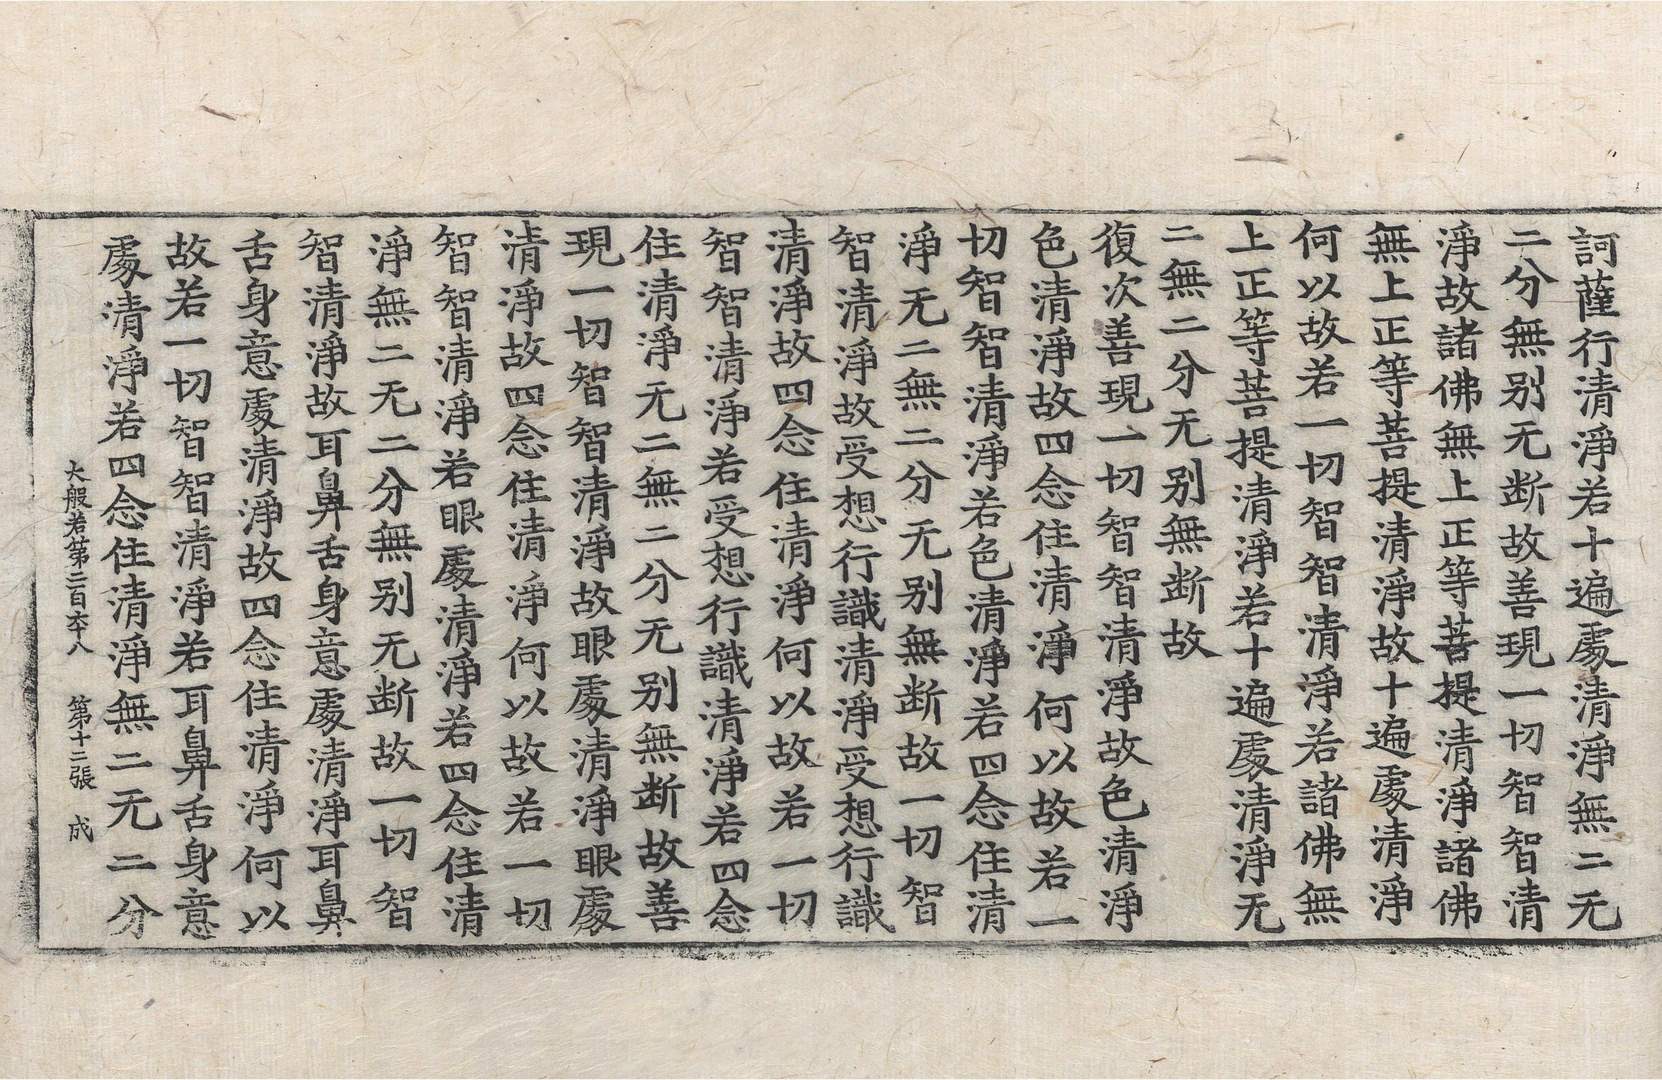 訶薩行清淨若十遍處清淨無二无
二分無别无断故善現一切智智清
淨故諸佛無上正等菩提清淨諸佛
無上正等菩提清淨故十遍處清淨
何以故若一切智智清淨若諸佛無
上正等菩提清淨若十遍處清淨无
二無二分无别無断故
復次善現一切智智清淨故色清淨
色清淨故四念住清淨何以故若一
切智智清淨若色清淨若四念住清
淨无二無二分无别無断故一切智
智清淨故受想行識清淨受想行識
清淨故四念住清淨何以故若一切
智智清淨若受想行識清淨若四念
住清淨无二無二分无别無断故善
現一切智智清淨故眼處清淨眼處
清淨故四念住清淨何以故若一切
智智清淨若眼處清淨若四念住清
淨無二无二分無别无断故一切智
智清淨故耳鼻舌身意處清淨耳鼻
舌身意處清淨故四念住清淨何以
故若一切智智清淨若耳鼻舌身意
處清淨若四念住清淨無二无二分
大般若第二百六十八 第十二張 成